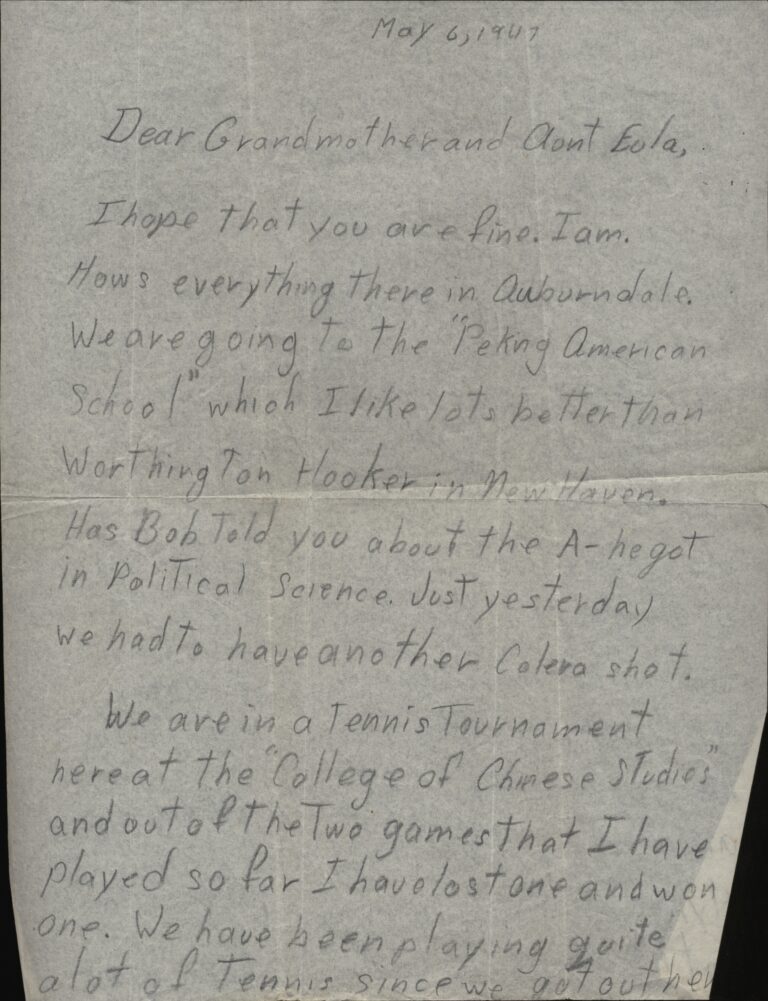 May 6, 1947
Dear Grandmother and Aont Eula,
I hope that you are fine. I am.
Hows everything there in Auburndale.
We are going to the "Peking American
School" which I like lots better than
Worthington Hooker in New Haven.
Has Bob Told you about the A- he got
in Political Science. Just yesterday
we had to have another Colera shot.
We are in a Tennis Tournament
here at the "College of Chinese Studies"
and out of the Two games that I have
played so far I have lost one and won
one. We have been playing quite
a lot of Tennis since we got out her